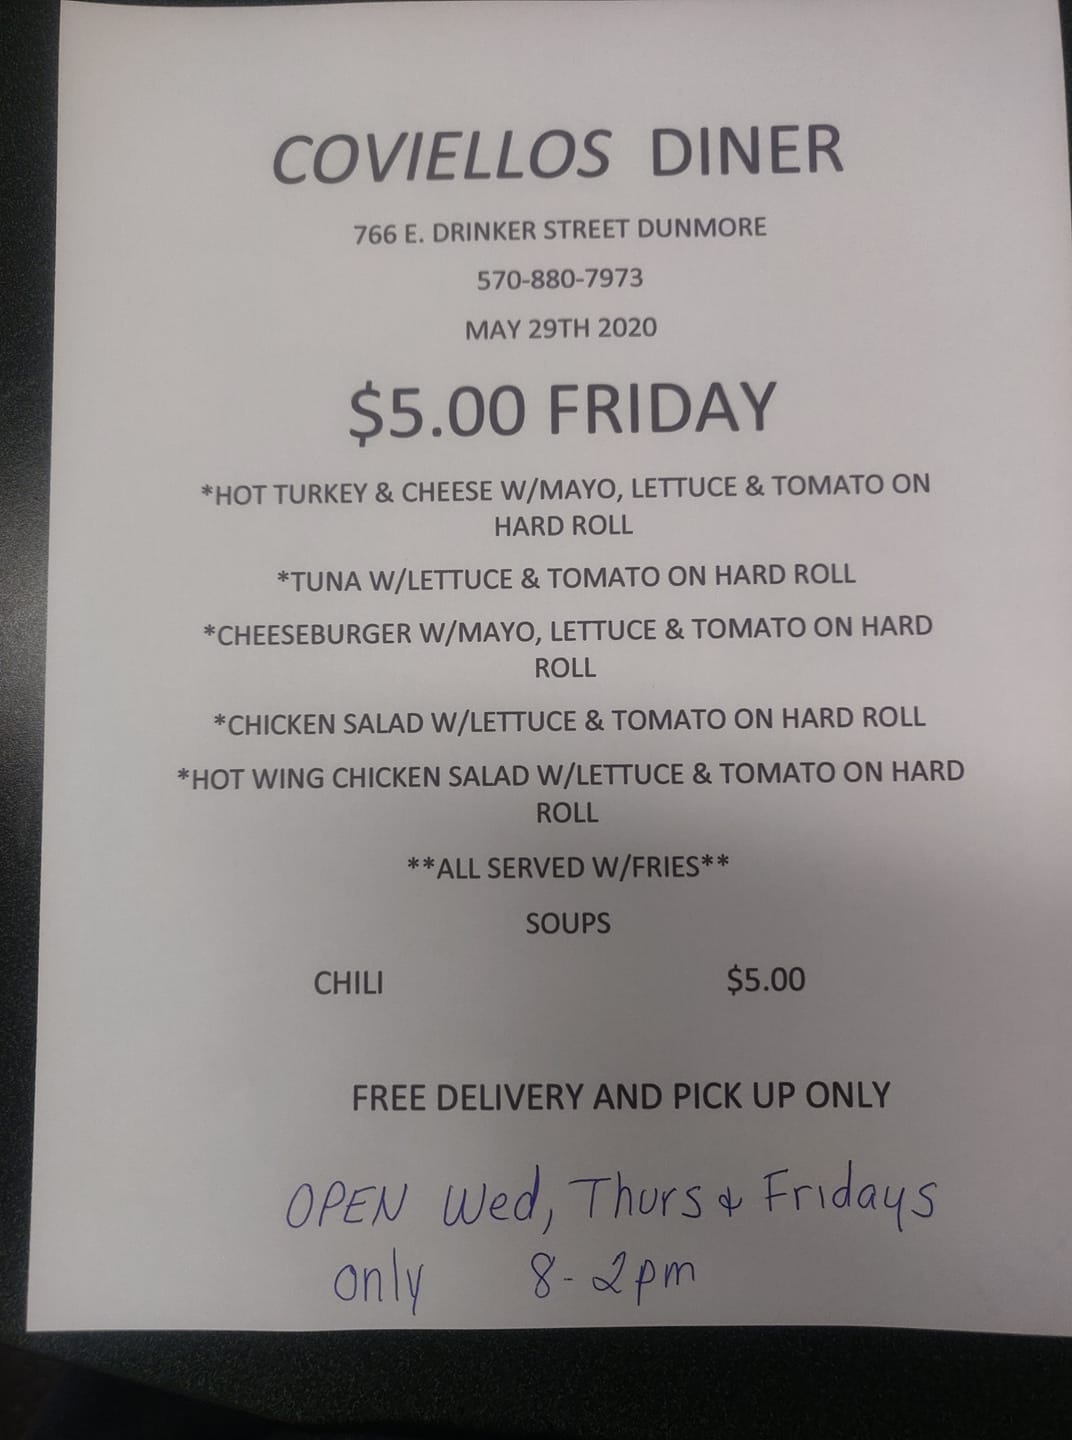 COVIELLOS DINER
766 E. DRINKER STREET DUNMORE
570-880-7973
MAY 29TH 2020
$5.00 FRIDAY
*HOT TURKEY & CHEESE W/MAYO, LETTUCE & TOMATO ON
HARD ROLL
*TUNA W/LETTUCE & TOMATO ON HARD ROLL
*CHEESEBURGER W/MAYO, LETTUCE & TOMATO ON HARD
ROLL
*CHICKEN SALAD W/LETTUCE & TOMATO ON HARD ROLL
*HOT WING CHICKEN SALAD W/LETTUCE & TOMATO ON HARD
ROLL
**ALL SERVED W/FRIES**
SOUPS
CHILI $5.00
FREE DELIVERY AND PICK UP ONLY
OPEN Wed, Thurs & Fridays
only 8-2pm